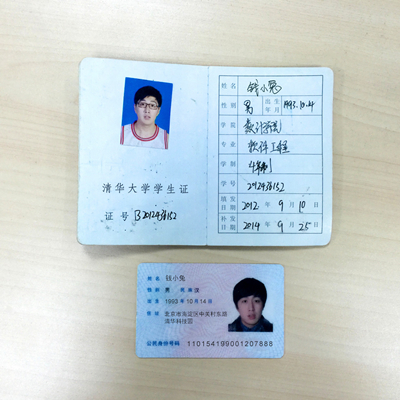 清华大学学生证
证号 B2012436152
姓名 钱小兔
性别 男 出生年月 1993.10.4
学院 数计学院
专业 软件工程
学制 4年制
学号 2012436152
填发日期 2012 年 9 月 10 日
补发日期 2014 年 9 月 25 日
姓名 钱小兔
性别 男 民族 汉
出生 1993 年 10 月 14 日
住址 北京市海淀区中关村东路
清华科技园
公民身份号码 110154199001207888